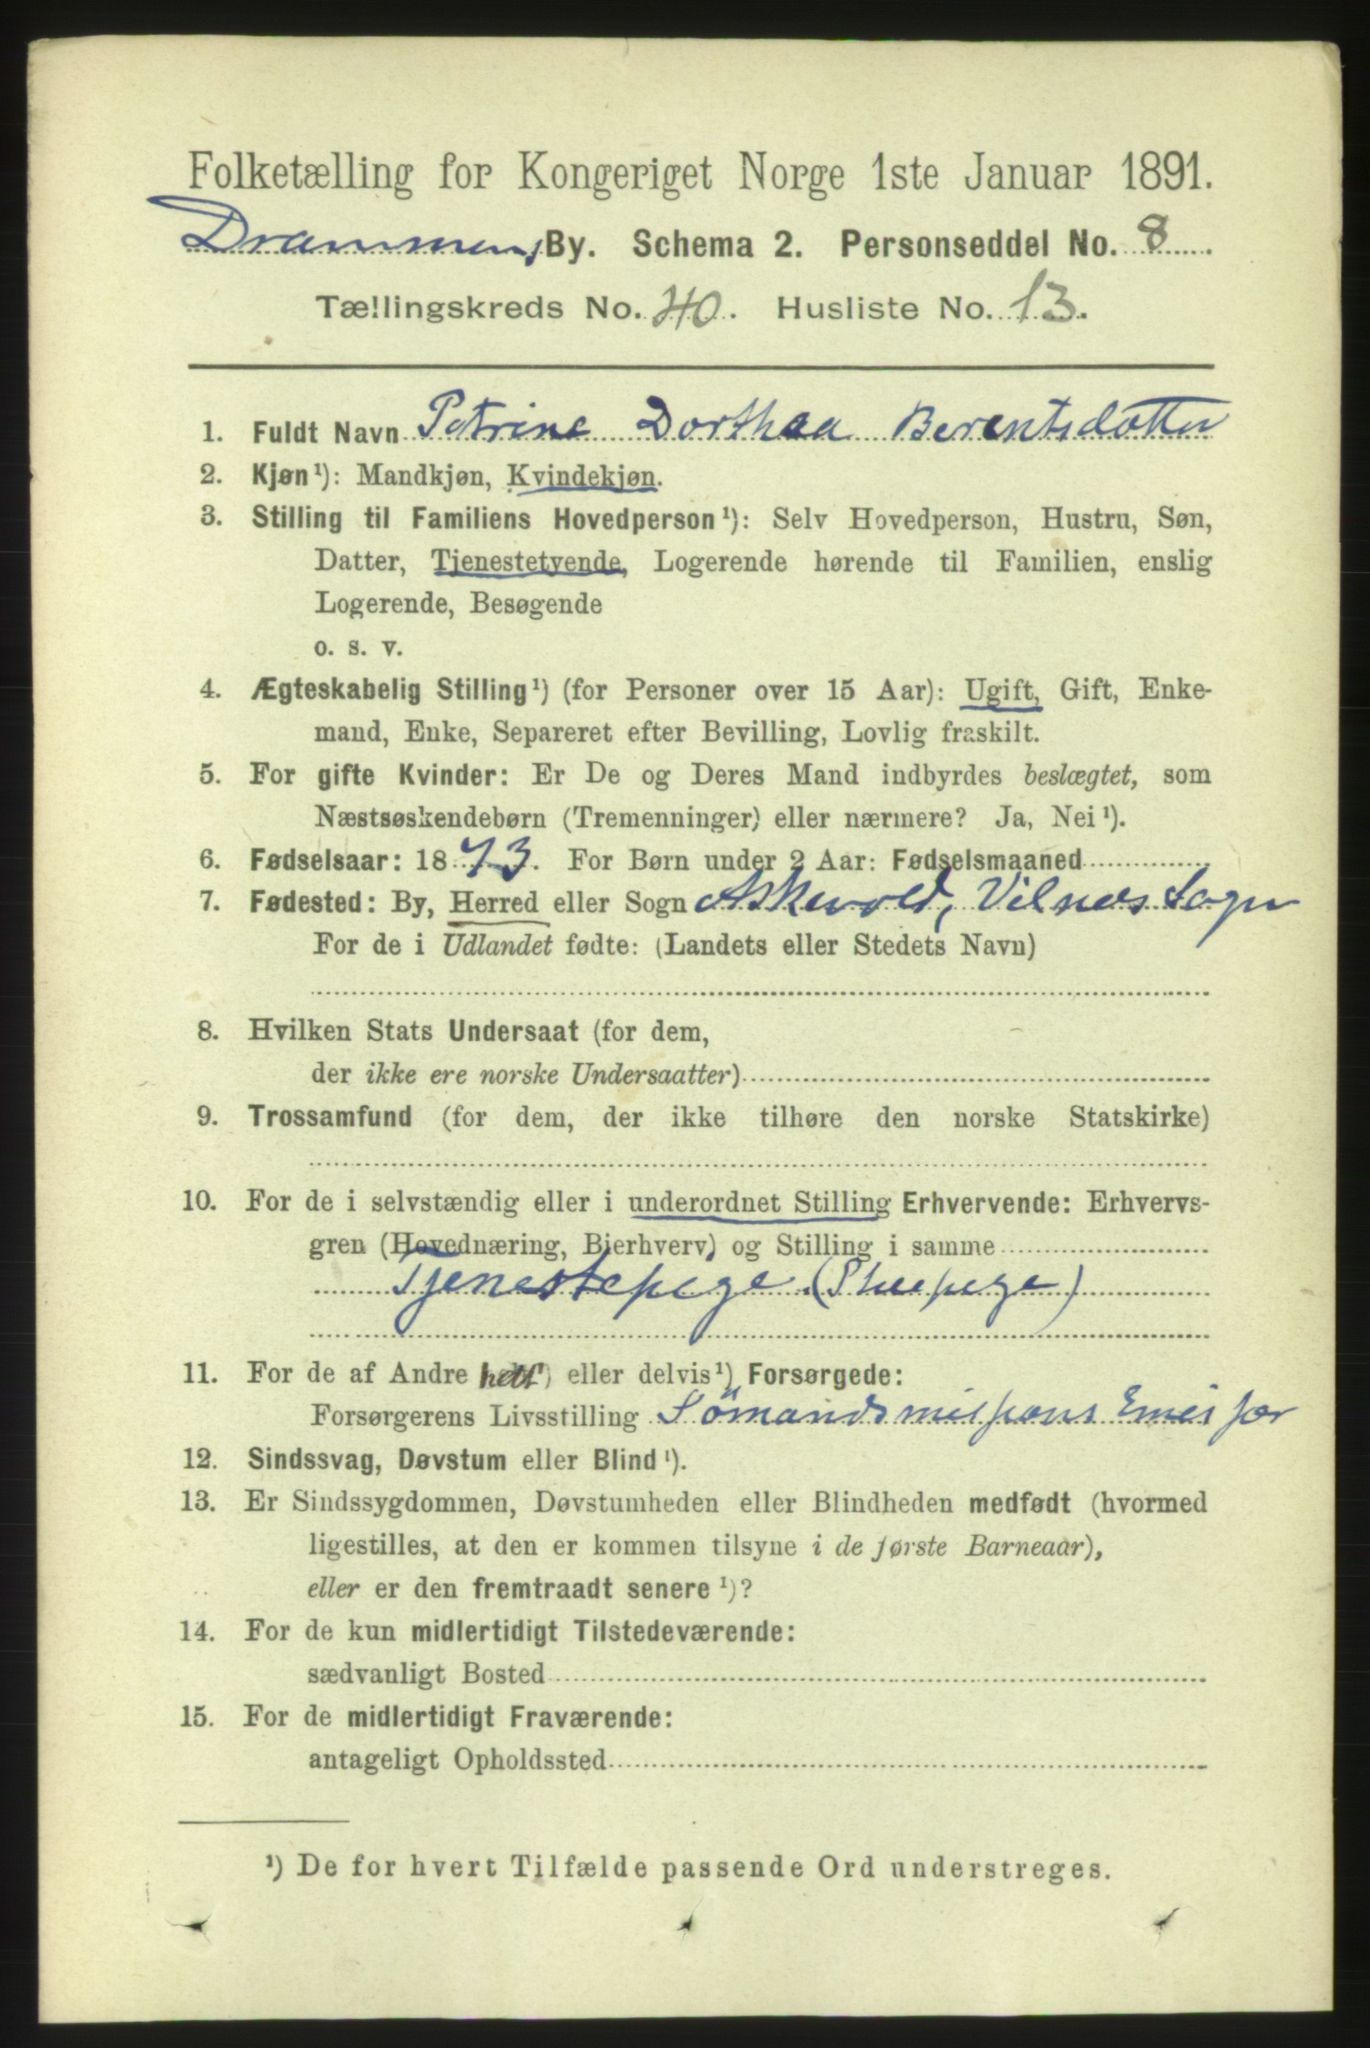 Folketælling for Kongeriget Norge 1ste Januar 1891.
Drammens By. Schema 2. Personseddel No. 8
Tællingskreds No. 40. Husliste No. 13.
1. Fuldt Navn Petrine Dorthea Berentsdatter
2. Kjøn¹): Mandkjøn, Kvindekjøn.
3. Stilling til Familiens Hovedperson¹): Selv Hovedperson, Hustru, Søn,
Datter, Tjenestetyende, Logerende hørende til Familien, enslig
Logerende, Besøgende
o. s. v.
4. Ægteskabelig Stilling¹) (for Personer over 15 Aar): Ugift, Gift, Enke-
mand, Enke, Separeret efter Bevilling, Lovlig fraskilt.
5. For gifte Kvinder: Er De og Deres Mand indbyrdes beslægtet, som
Næstsøskendebørn (Tremenninger) eller nærmere? Ja, Nei¹).
6. Fødselsaar: 1873. For Børn under 2 Aar: Fødselsmaaned
7. Fødested: By, Herred eller Sogn Askevold, Vilnes Sogn
For de i Udlandet fødte: (Landets eller Stedets Navn)
8. Hvilken Stats Undersaat (for dem,
der ikke ere norske Undersaatter)
9. Trossamfund (for dem, der ikke tilhøre den norske Statskirke)
10. For de i selvstændig eller i underordnet Stilling Erhvervende: Erhvervs-
gren (Hovednæring, Bierhverv) og Stilling i samme
Tjenestepige (Stuepige)
11. For de af Andre helt¹) eller delvis¹) Forsørgede:
Forsørgerens Livsstilling Sömands
12. Sindssvag, Døvstum eller Blind¹).
13. Er Sindssygdommen, Døvstumheden eller Blindheden medfødt (hvormed
ligestilles, at den er kommen tilsyne i de første Barneaar),
eller er den fremtraadt senere¹)?
14. For de kun midlertidigt Tilstedeværende:
sædvanligt Bosted
15. For de midlertidigt Fraværende:
antageligt Opholdssted
¹) De for hvert Tilfælde passende Ord understreges.